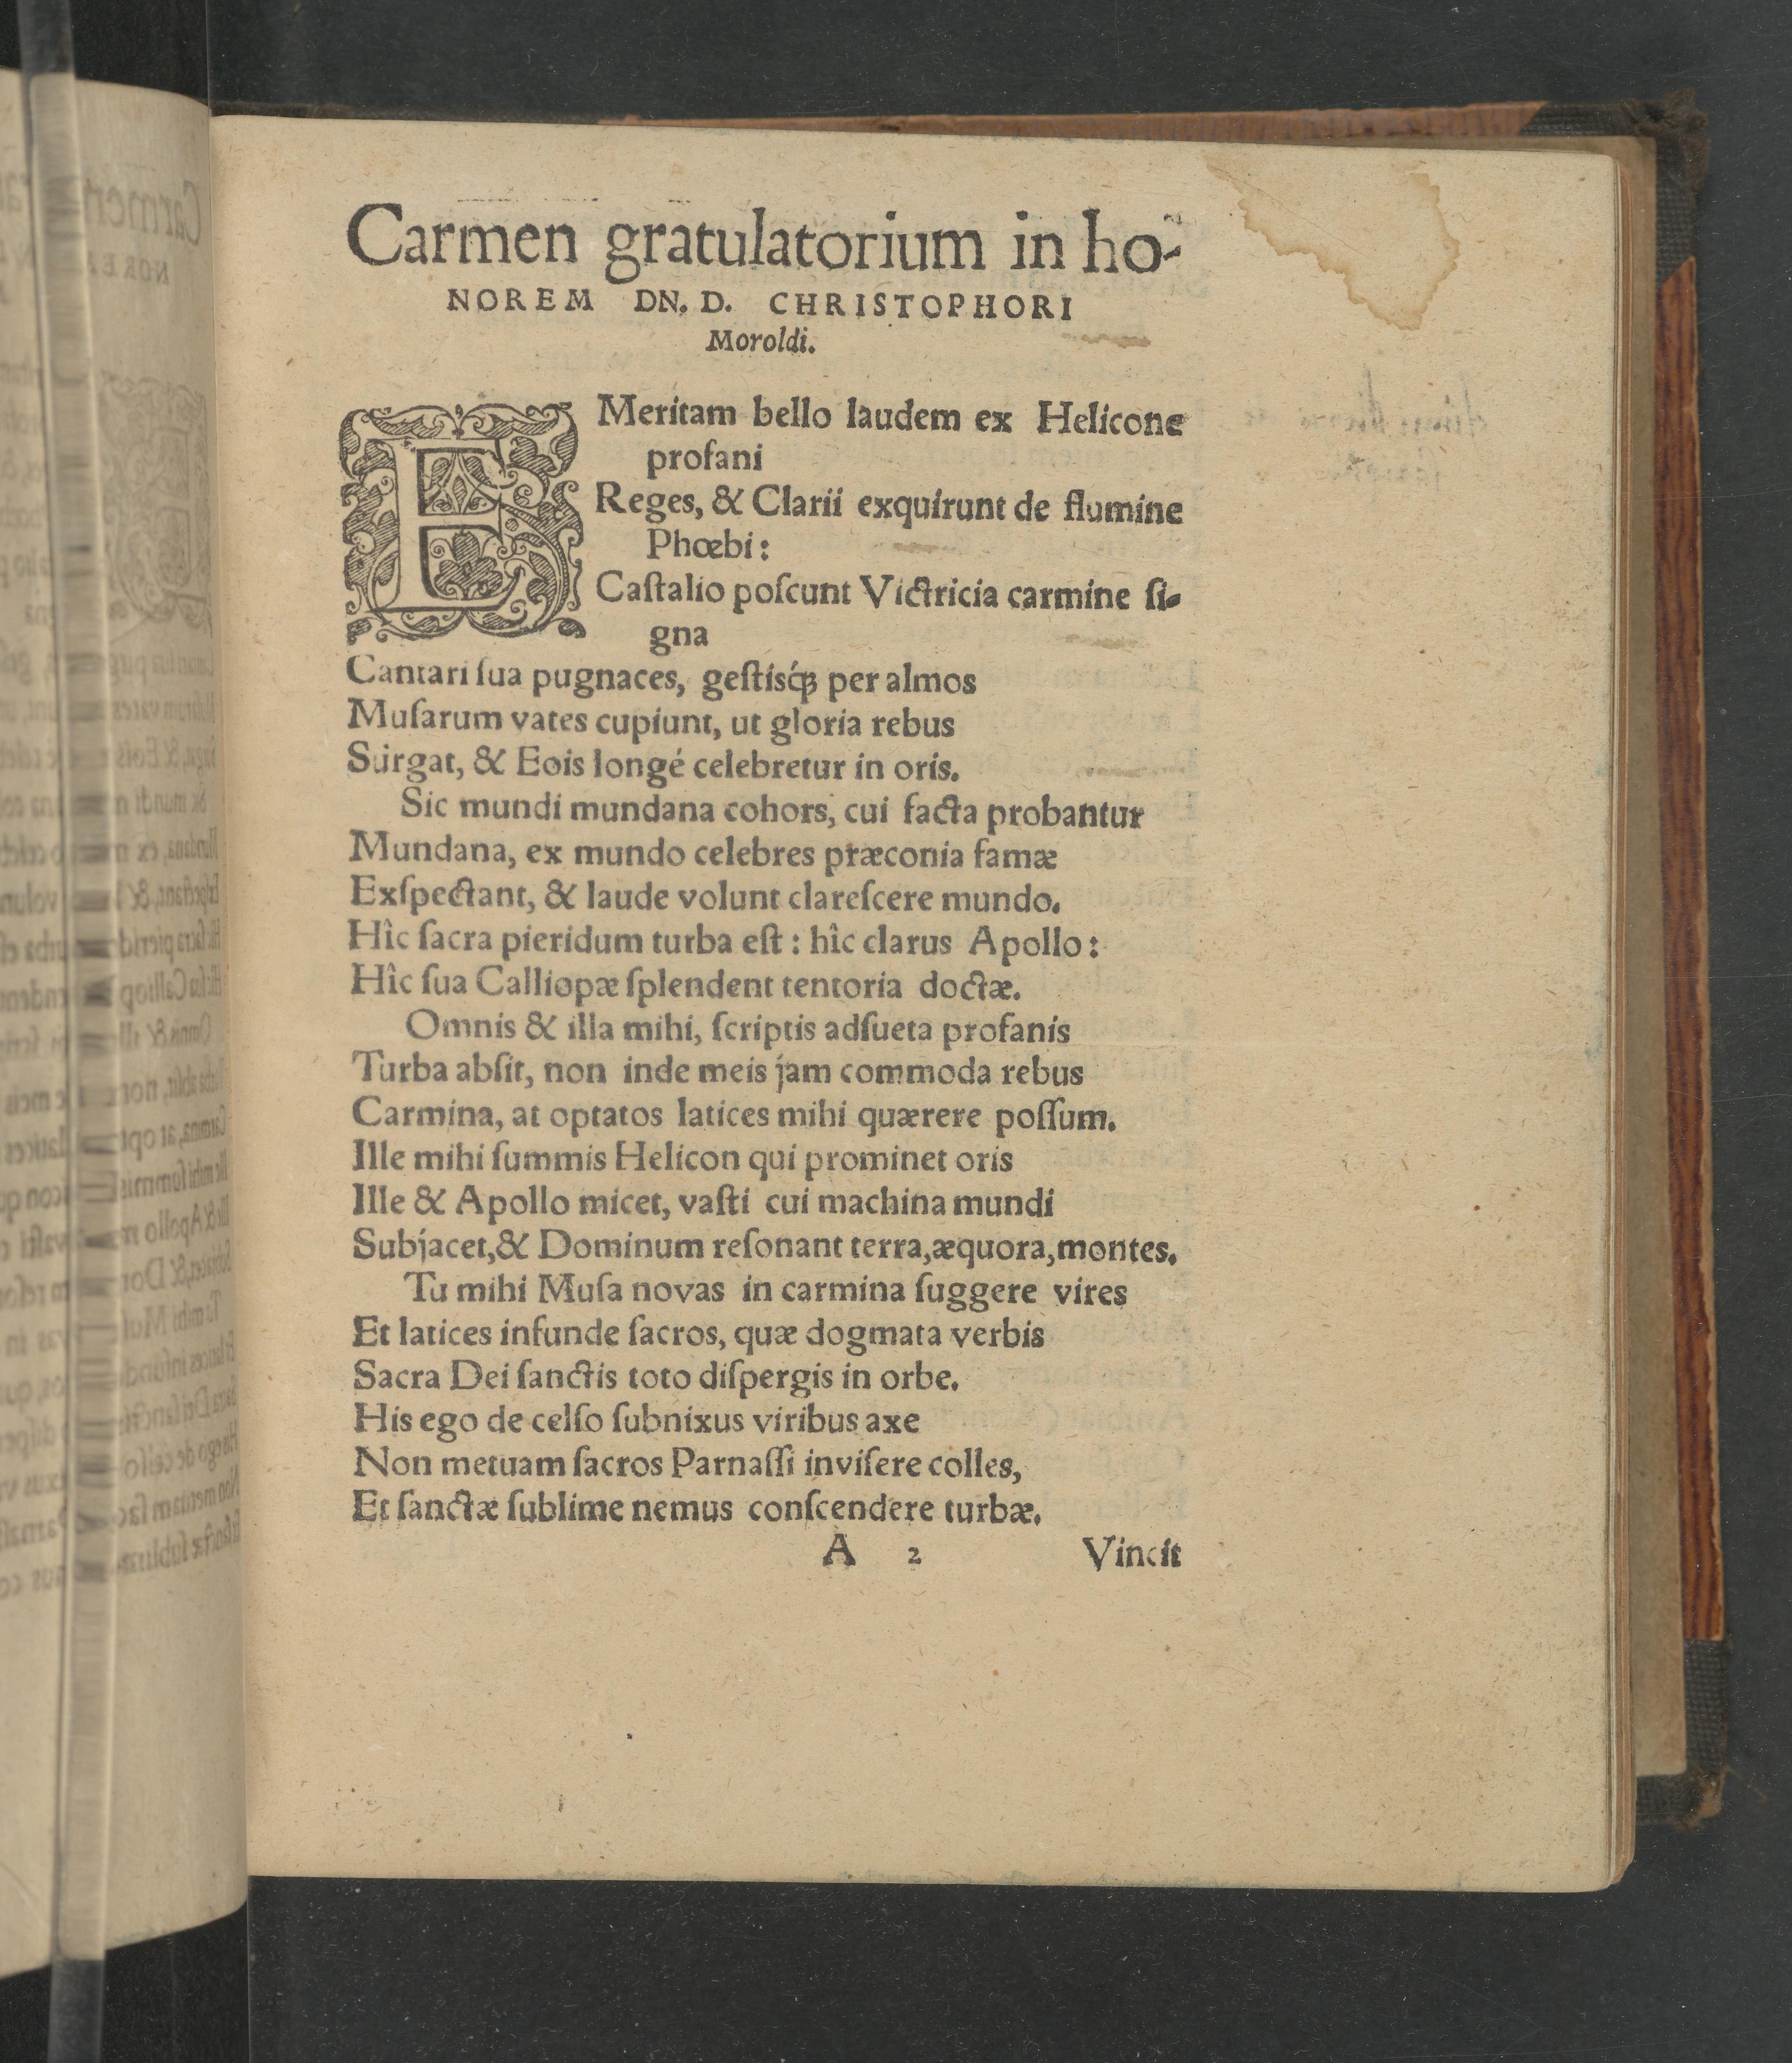 Carmen gratulatorium in ho-
NOREM DN. D. CHRISTOPHORI
Moroldi.
EMeritam bello laudem ex Helicone
profani
Reges, & Clarii exquirunt de flumine
Phœbi:
Caſtalio poſcunt Victricia carmine ſi-
gna
Cantari ſua pugnaces, geſtisq́ꝫ per almos
Muſarum vates cupiunt, ut gloria rebus
Surgat, & Eois longé celebretur in oris.
Sic mundi mundana cohors, cui facta probantur
Mundana, ex mundo celebres præconia famæ
Exſpectant, & laude volunt clareſcere mundo.
Hîc ſacra pieridum turba eſt: hîc clarus Apollo:
Hîc ſua Calliopæ ſplendent tentoria doctæ.
Omnis & illa mihi, ſcriptis adſueta profanis
Turba abſit, non inde meis jam commoda rebus
Carmina, at optatos latices mihi quærere poſſum.
Ille mihi ſummis Helicon qui prominet oris
Ille & Apollo micet, vaſti cui machina mundi
Subjacet,& Dominum reſonant terra,æquora,montes.
Tu mihi Muſa novas in carmina ſuggere vires
Et latices infunde ſacros, quæ dogmata verbis
Sacra Dei ſanctis toto diſpergis in orbe.
His ego de celſo ſubnixus viribus axe
Non metuam ſacros Parnaſſi inviſere colles,
Et ſanctæ ſublime nemus conſcendere turbæ.
A 2 Vincit